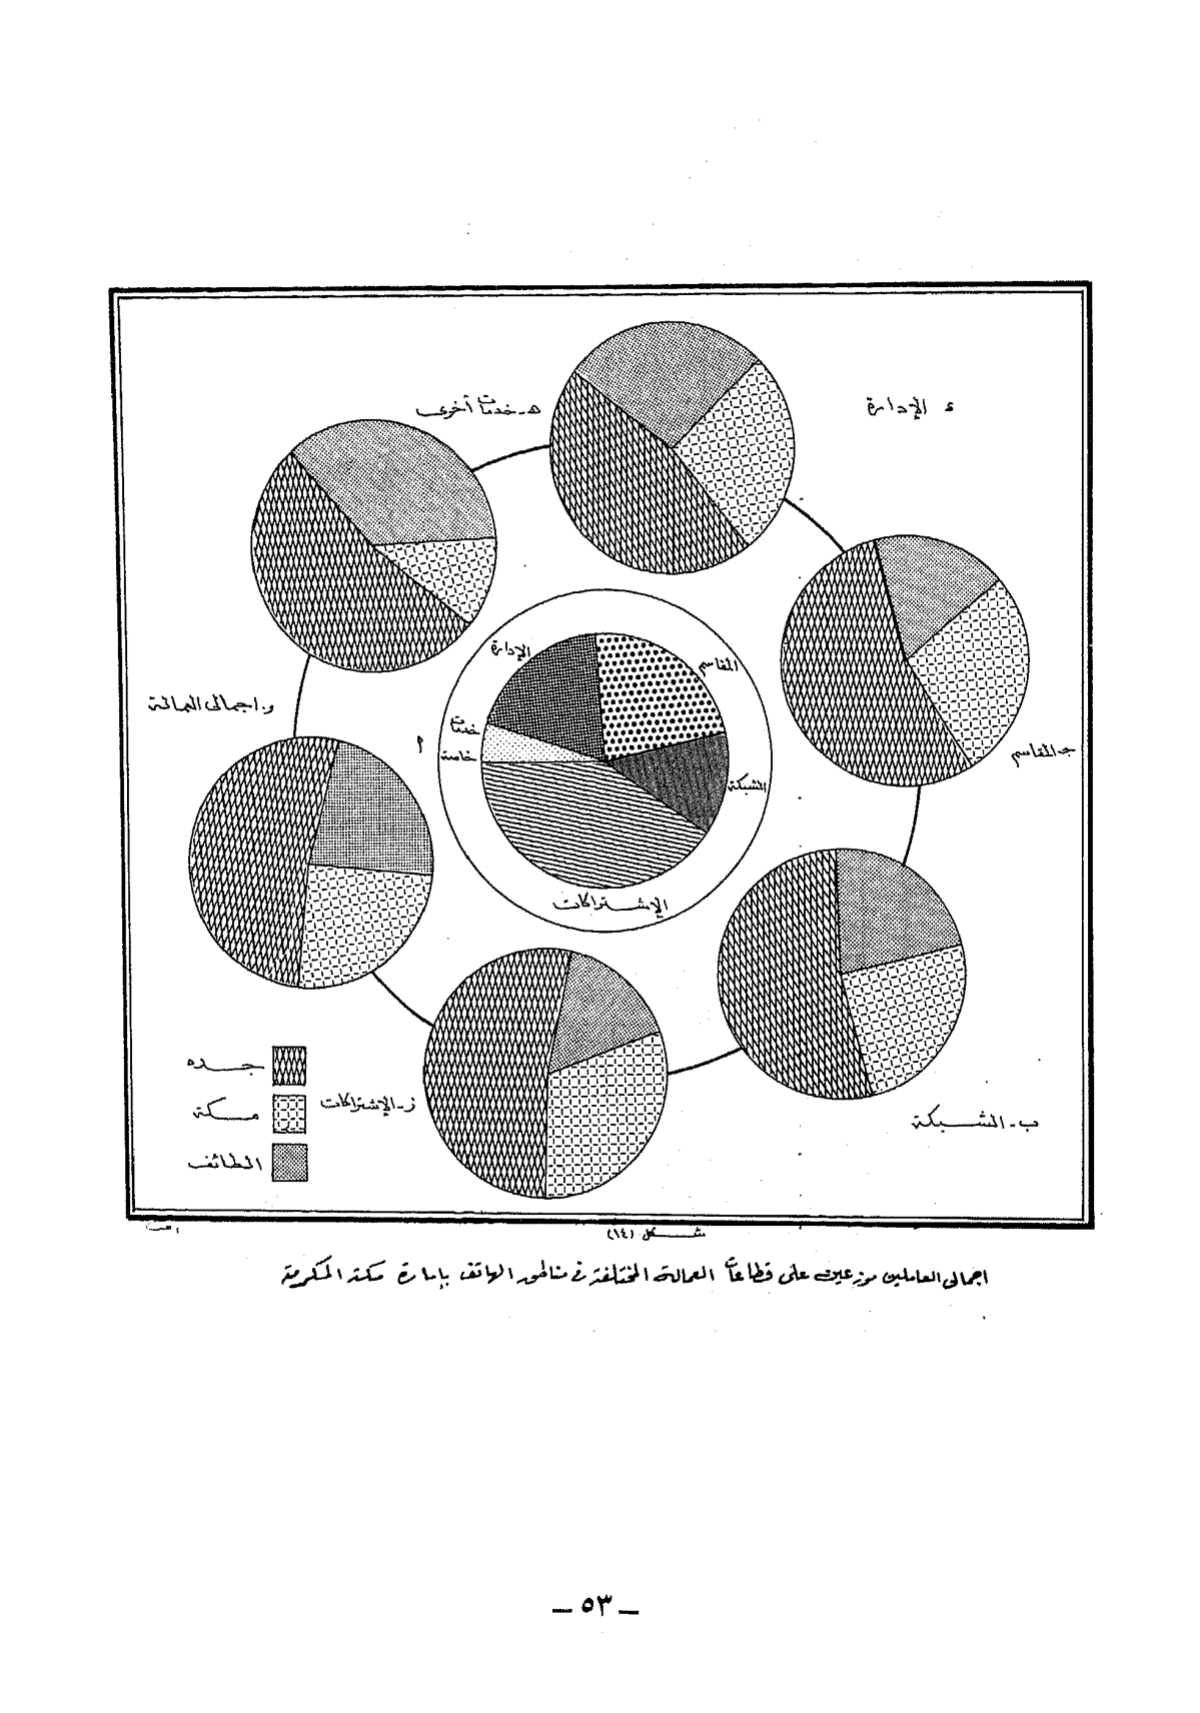 ء الإدارة
هـ - خدمات أخرى
و. اجمالى العمالة
جـ المقاسم
ب - الشبكة
ز - الإشتراكات
أ
الإدارة
المقاسم
خدمات
خاصة
الشبكة
الإشتراكات
جده
مكة
الطائف
شكل (١٤)
اجمالى العاملين موزعين على قطاعات العمالة المختلفة فى مناطق الهاتف بإمارة مكة المكرمة
ــ ٥٣ ــ